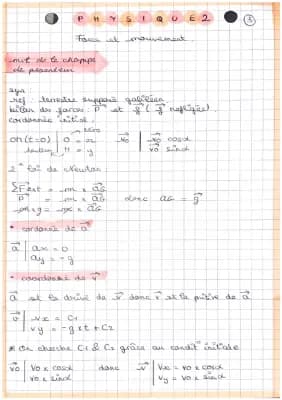 PHYSIQUE 2
③
Force et mouvement
mvt de la champ
de pesanteur
sys
ref : terrestre supposé galiléen
bilan des forces : P et f (f négligée)
coordonnée initial :
OM (t=0) | 0 = x
| H = y
v0 | v0 cosα
| v0 sinα
2e loi de Newton
ΣFext = m x aG
P = m x aG donc aG = g
m x g = m x aG
* coordonnée de a
a | ax = 0
| ay = -g
* coordonnée de v
a est la dérivé de v donc v est la pitive de a
v | vx = C1
| vy = -g x t + C2
* On cherche C1 & C2 grâce au condit° initiale
v0 | V0 x cosα
| V0 x sinα
donc v | Vx = v0 x cosα
| Vy = v0 x sinα